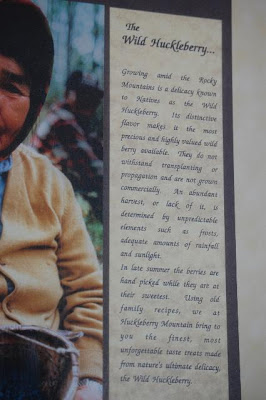 The
Wild Huckleberry...
Growing amid the Rocky
Mountains is a delicacy known
to Natives as the Wild
Huckleberry. Its distinctive
flavor makes it the most
precious and highly valued wild
berry available. They do not
withstand transplanting or
propagation and are not grown
commercially. An abundant
harvest, or lack of it, is
determined by unpredictable
elements such as frosts,
adequate amounts of rainfall
and sunlight.
In late summer the berries are
hand picked while they are at
their sweetest. Using old
family recipes, we at
Huckleberry Mountain bring to
you the finest, most
unforgettable taste treats made
from nature's ultimate delicacy,
the Wild Huckleberry.